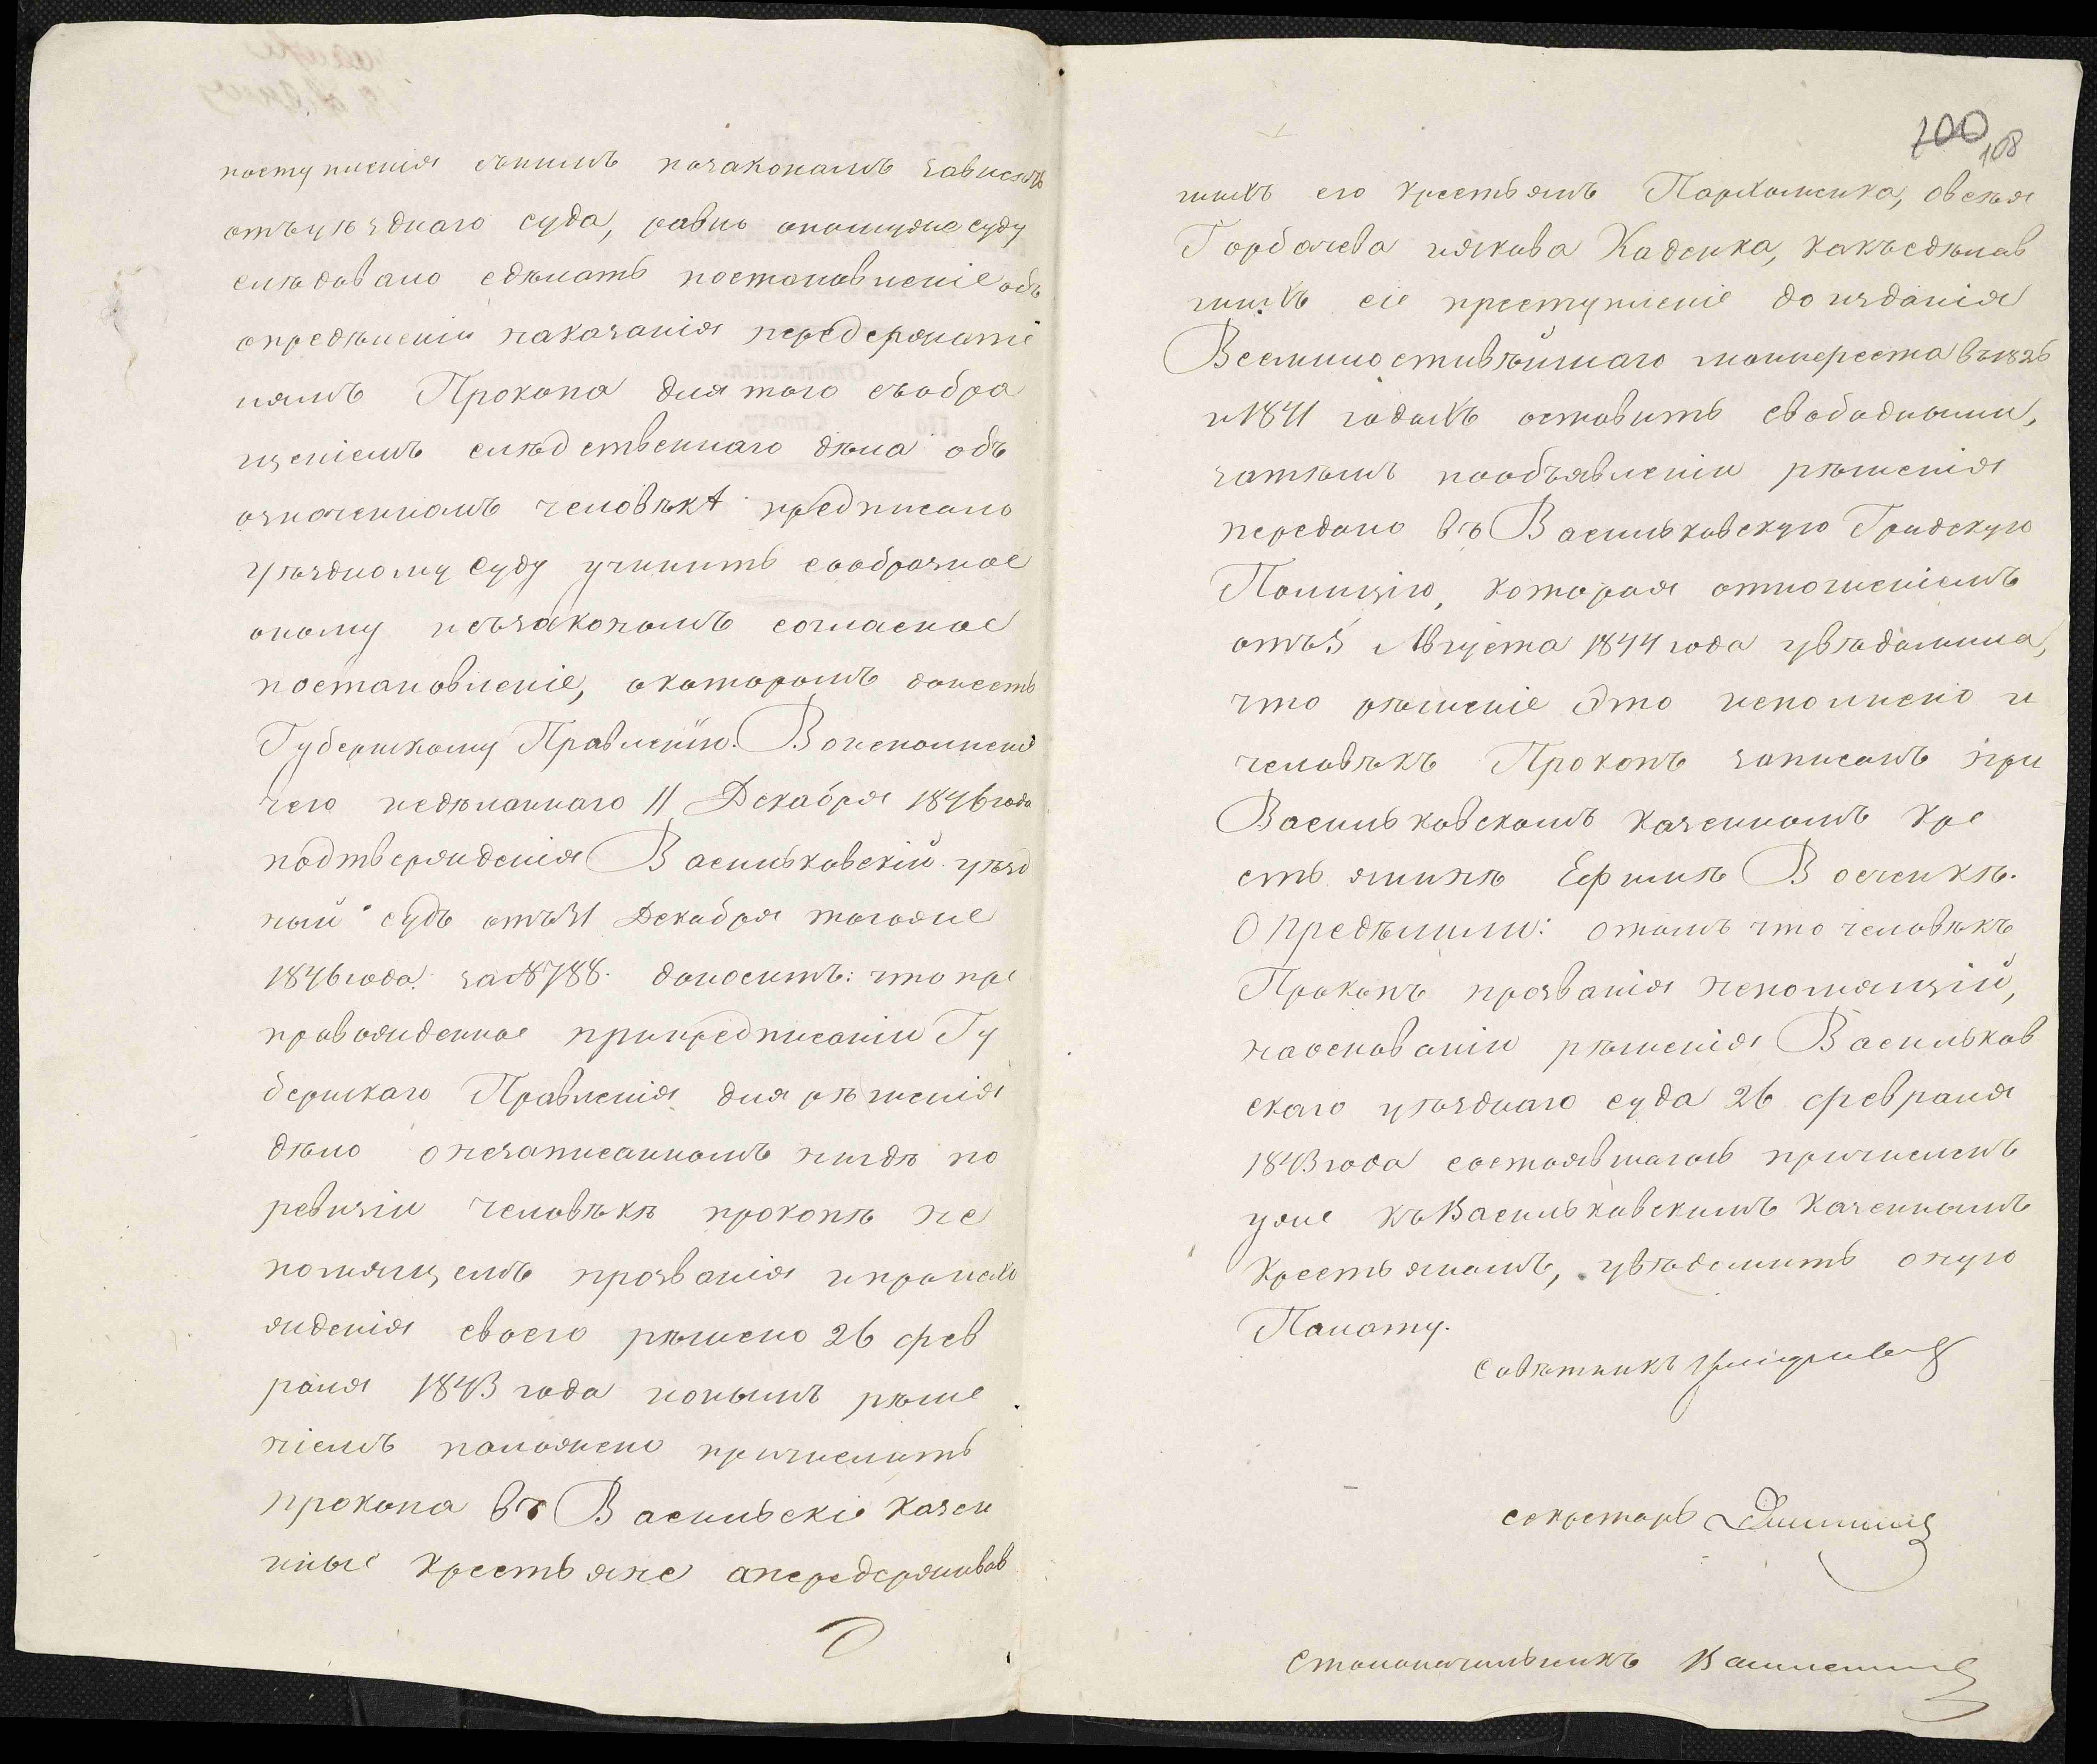 поступленія съ нимъ позаконамъ зависитъ
отъ уѣзднаго суда, равно аномуже суду
слѣдовало сдѣлать постановленіе объ
опредѣленіи наказанія передержате
лямъ Прокопа для того съ обра
щеніемъ слѣдственнаго дѣла объ
означенномъ человѣкѣ предписано
уѣздному суду учинить сообразное
оному исъзаконамъ согласное
постановленіе, окоторомъ донесть
Губернскому Правленію. Во исполненіе
чего и сдѣланнаго 11 Декабря 1846 года
подтвержденія Васильковскій уѣзд
ный судъ отъ 31 Декабря тогоже
1846 года за №8788. доноситъ: что пре
провожденное припредписаніи Гу
бернскаго Правленія для рѣшенія
дѣло онезаписанномъ нигдѣ по
ревизіи человѣкѣ прокопѣ не
помнящемъ прозванія ипроисхо
жденія своего рѣшено 26 фев
раля 1843 года ионымъ рѣше
ніемъ положено причислить
прокопа въ Васильскіе казен
ные крестьяне апередерживав
100
108
шихъ его крестьянъ Пархоменка, овсѣя
Горбачева иякова Каденка, какъ сдѣлав
шихъ сіе преступленіе до изданія
Всемилостивѣйшаго манифеста въ 1826
и 1841 годахъ оставить свободными,
затѣмъ пообъявленіи рѣшенія
передано въ Васильковскую Градскую
Полицію, которая отношеніемъ
отъ 5 Августа 1844 года увѣдомила,
что рѣшеніе это исполнено и
человѣкъ Прокопъ записанъ при
Васильковскомъ казенномъ кре
стьянинѣ Ефимѣ Восченкѣ.
Опредѣлили: отомъ что человѣкъ
Прокопъ прозванія непомнящій,
наоснованіи рѣшенія Васильков
скаго уѣзднаго суда 26 февраля
1843 года состоявшагось причисленъ
уже къ Васильковскимъ казеннымъ
крестьянамъ, увѣдомить оную
Палату.
Совѣтникъ
Секретарь
Столоначальникъ